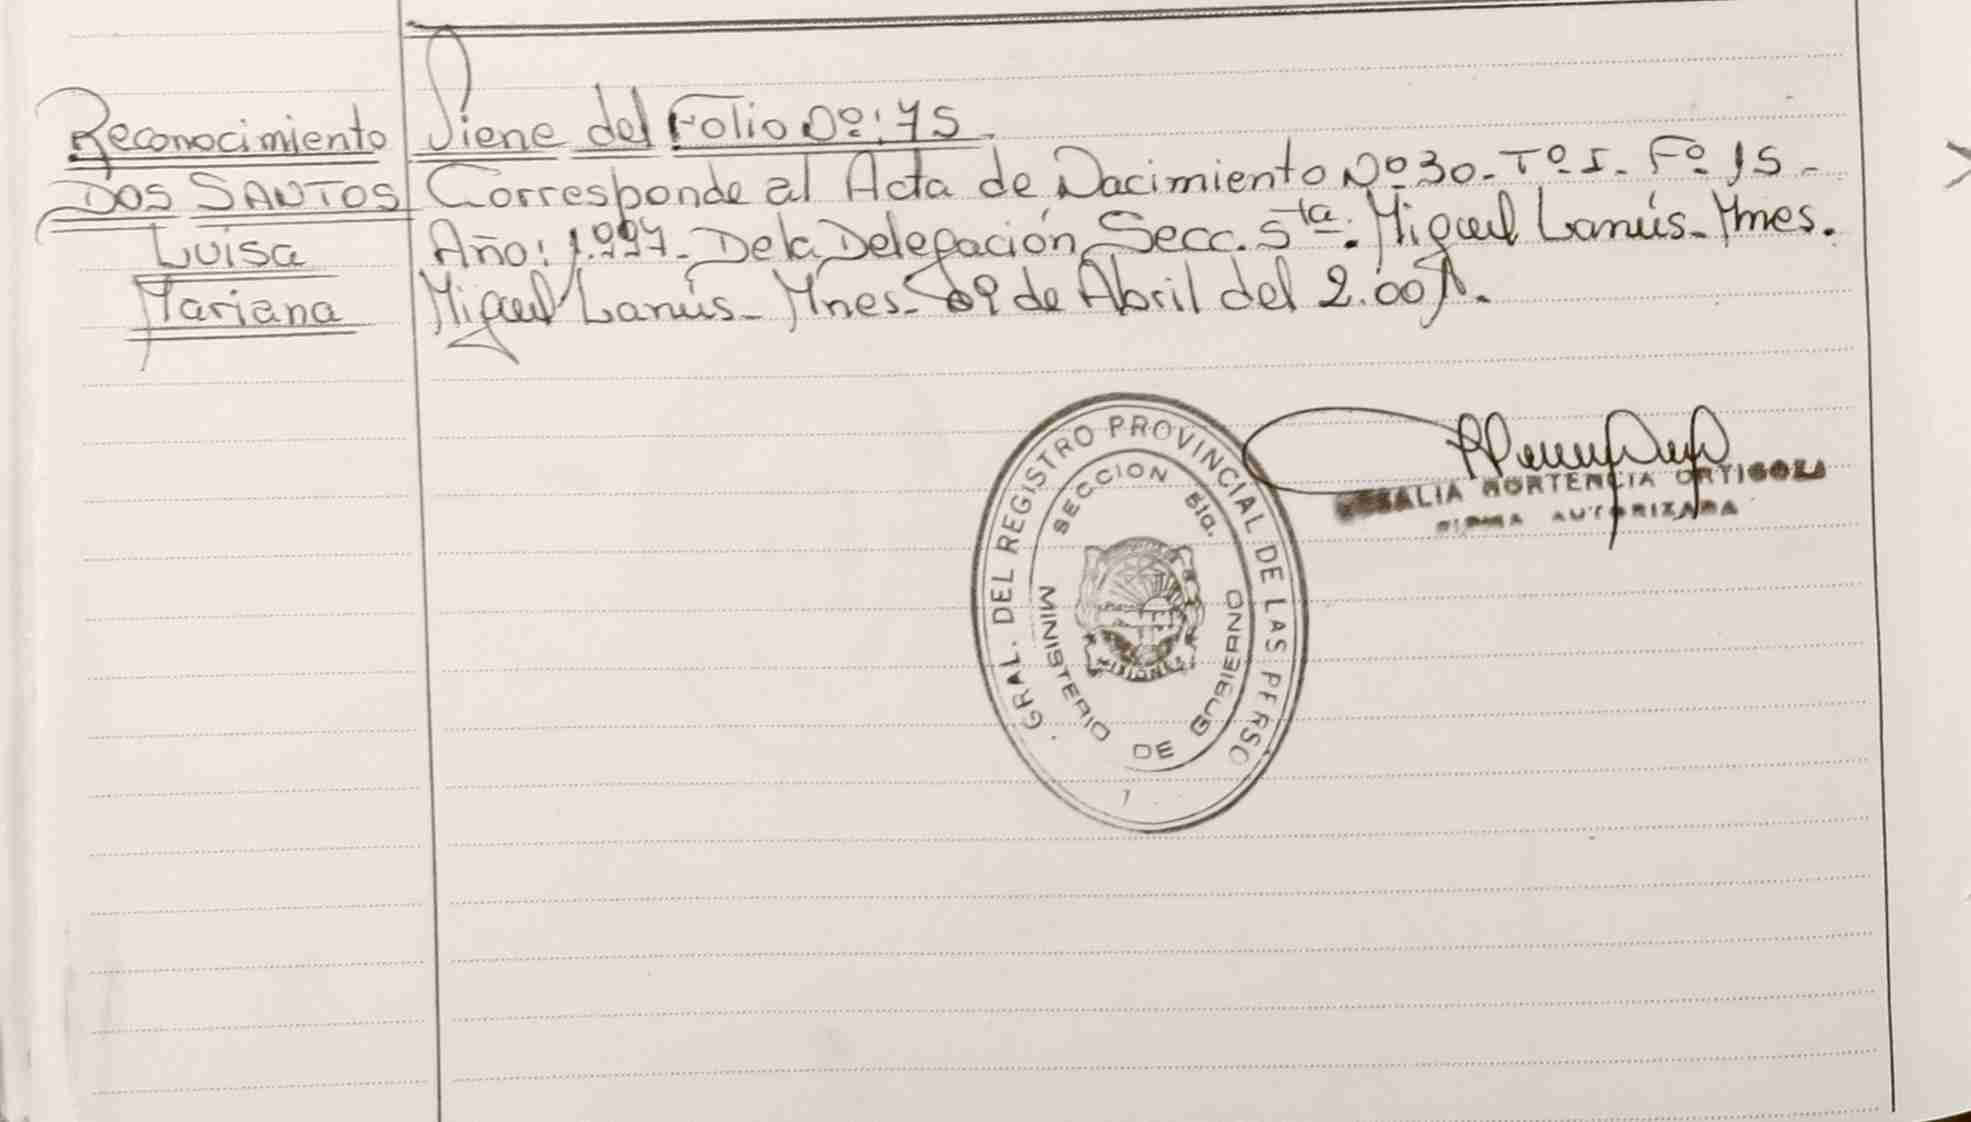 Reconocimiento
DOS SANTOS
Luisa
Mariana
Viene del Folio Nº: 75.
Corresponde al Acta de Nacimiento Nº 30 - Tº I - Fº 15 -
Año: 1.997 - De la Delegación Secc. 5ta. Miguel Lanús - Mnes.
Miguel Lanús - Mnes - 09 de Abril del 2.001.
GRAL. DEL REGISTRO PROVINCIAL DE LAS PERSO
SECCION 5ta.
MINISTERIO DE GOBIERNO
MISIONES
HORTENCIA ORTIGOZA
FIRMA AUTORIZADA